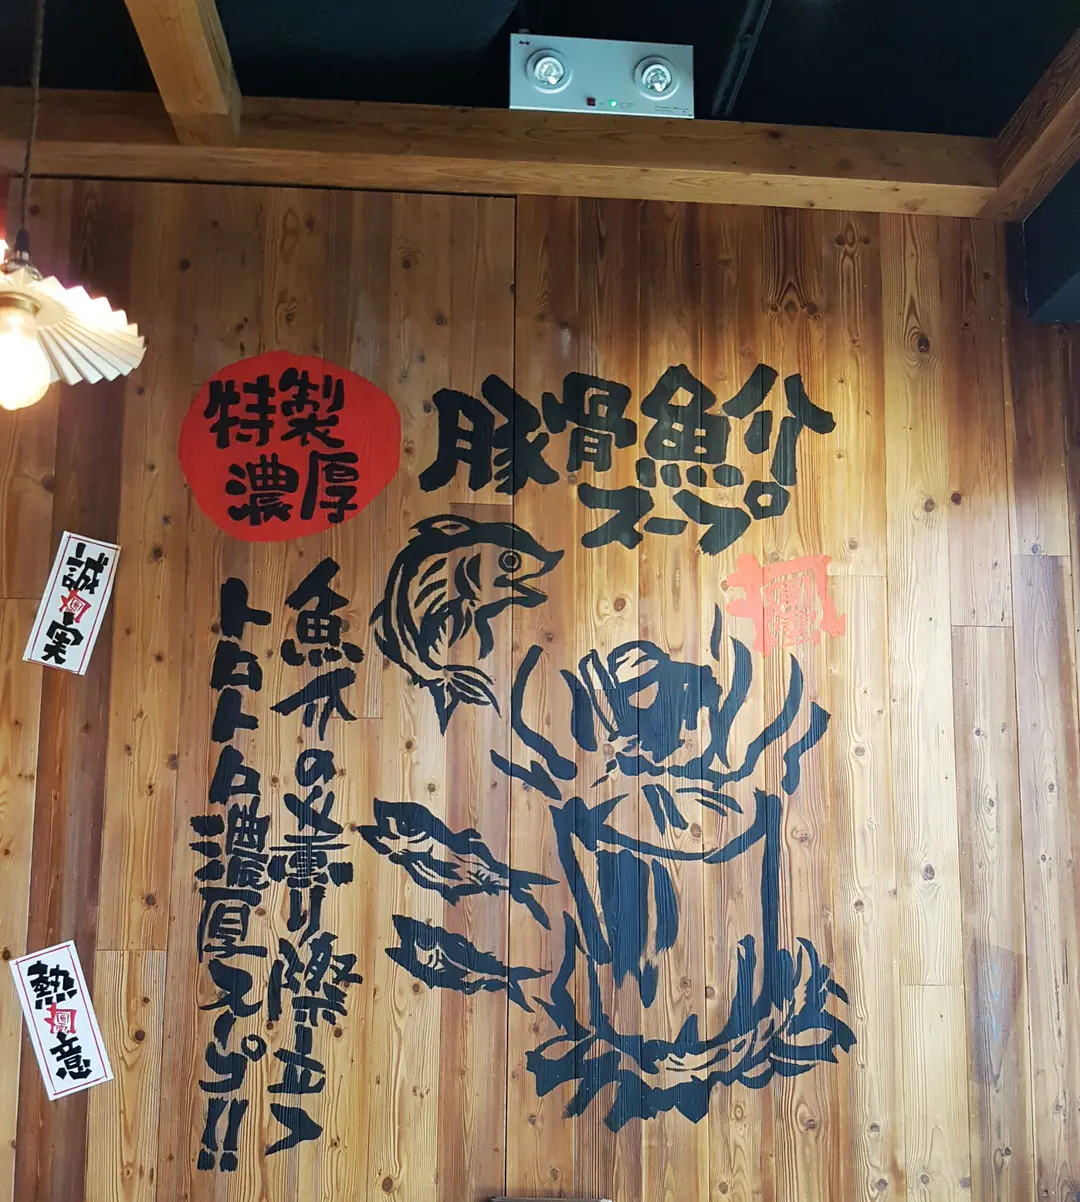 特製
濃厚
豚骨魚介
スープ
魚介の薫り際立つ
トロトロ濃厚スープ!!
熱意